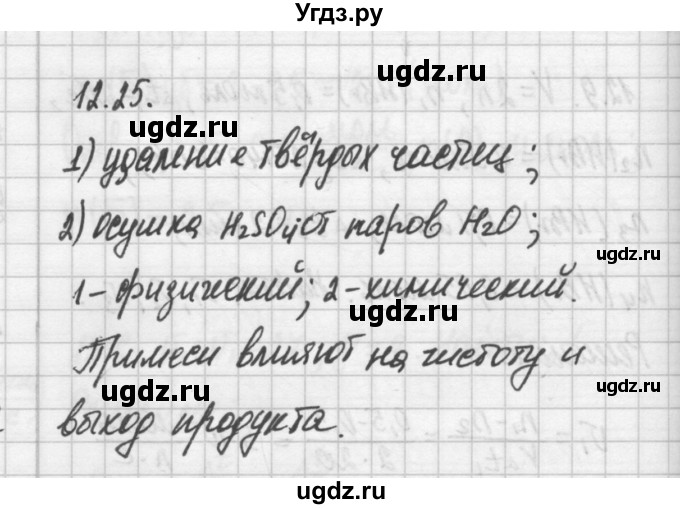 Угдз.ру
12.25.
ugdz.ru
ugdz.ru
1) удаление твёрдых частиц;
ugdz.ru
2) осушка H₂SO₄ от паров H₂O;
ugdz.ru
ugdz.ru
1 - физический; 2 - химический.
ugdz.ru
Примеси влияют на чистоту и
ugdz.ru
ugdz.ru
выход продукта.
ugdz.ru
ugdz.ru